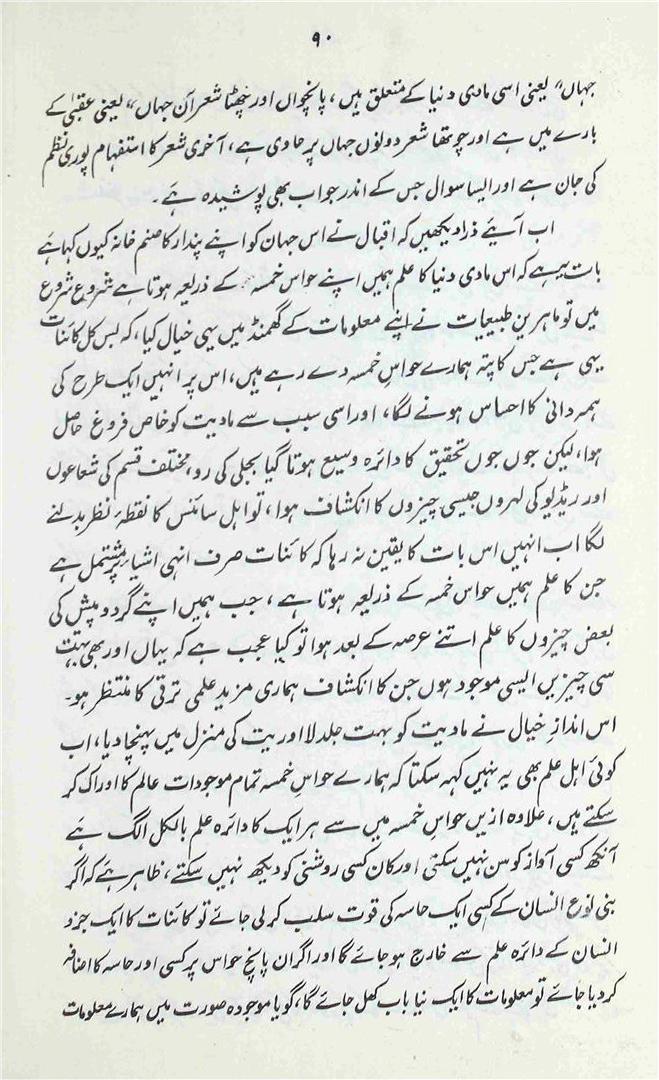 ۹۰
جہاں“ یعنی اسی مادی دنیا کے متعلق ہیں، پانچواں اور چھٹا شعر آن جہاں“ یعنی عقبیٰ کے
بارے میں ہے اور چوتھا شعر دونوں جہاں پر حاوی ہے، آخری شعر کا استفہام پوری نظم
کی جان ہے اور ایسا سوال جس کے اندر جواب بھی پوشیدہ ہے۔
اب آئیے ذرا دیکھیں کہ اقبال نے اس جہان کو اپنے پندار کا صنم خانہ کیوں کہا ہے
بات یہ ہے کہ اس مادی دنیا کا علم ہمیں اپنے حواس خمسہ کے ذریعہ ہوتا ہے شروع شروع
میں تو ماہرین طبیعیات نے اپنے معلومات کے گھمنڈ میں یہی خیال کیا، کہ بس کل کائنات
یہی ہے جس کا پتہ ہمارے حواسِ خمسہ دے رہے ہیں، اس پر انہیں ایک طرح کی
ہمہ دانی کا احساس ہونے لگا، اور اسی سبب سے مادیت کو خاص فروغ حاصل
ہوا، لیکن جوں جوں تحقیق کا دائرہ وسیع ہوتا گیا بجلی کی رو، مختلف قسم کی شعاعوں
اور ریڈیو کی لہروں جیسی چیزوں کا انکشاف ہوا، تو اہل سائنس کا نقطۂ نظر بدلنے
لگا اب انہیں اس بات کا یقین نہ رہا کہ کائنات صرف انہی اشیاء پر مشتمل ہے
جن کا علم ہمیں حواس خمسہ کے ذریعہ ہوتا ہے، جب ہمیں اپنے گرد و پیش کی
بعض چیزوں کا علم اتنے عرصہ کے بعد ہوا تو کیا عجب ہے کہ یہاں اور بھی بہت
سی چیزیں ایسی موجود ہوں جن کا انکشاف ہماری مزید علمی ترقی کا منتظر ہو۔
اس اندازِ خیال نے مادیت کو بہت جلد لا ادریت کی منزل میں پہنچا دیا، اب
کوئی اہل علم بھی یہ نہیں کہہ سکتا کہ ہمارے حواسِ خمسہ تمام موجودات عالم کا ادراک کر
سکتے ہیں، علاوہ ازیں حواسِ خمسہ میں سے ہر ایک کا دائرہ علم بالکل الگ ہے
آنکھ کسی آواز کو سن نہیں سکتی اور کان کسی روشنی کو دیکھ نہیں سکتے، ظاہر ہے کہ اگر
بنی نوع انسان کے کسی ایک حاسہ کی قوت سلب کر لی جائے تو کائنات کا ایک جزو
انسان کے دائرہ علم سے خارج ہو جائے گا اور اگر ان پانچ حواس پر کسی اور حاسہ کا اضافہ
کر دیا جائے تو معلومات کا ایک نیا باب کھل جائے گا، گویا موجودہ صورت میں ہمارے معلومات